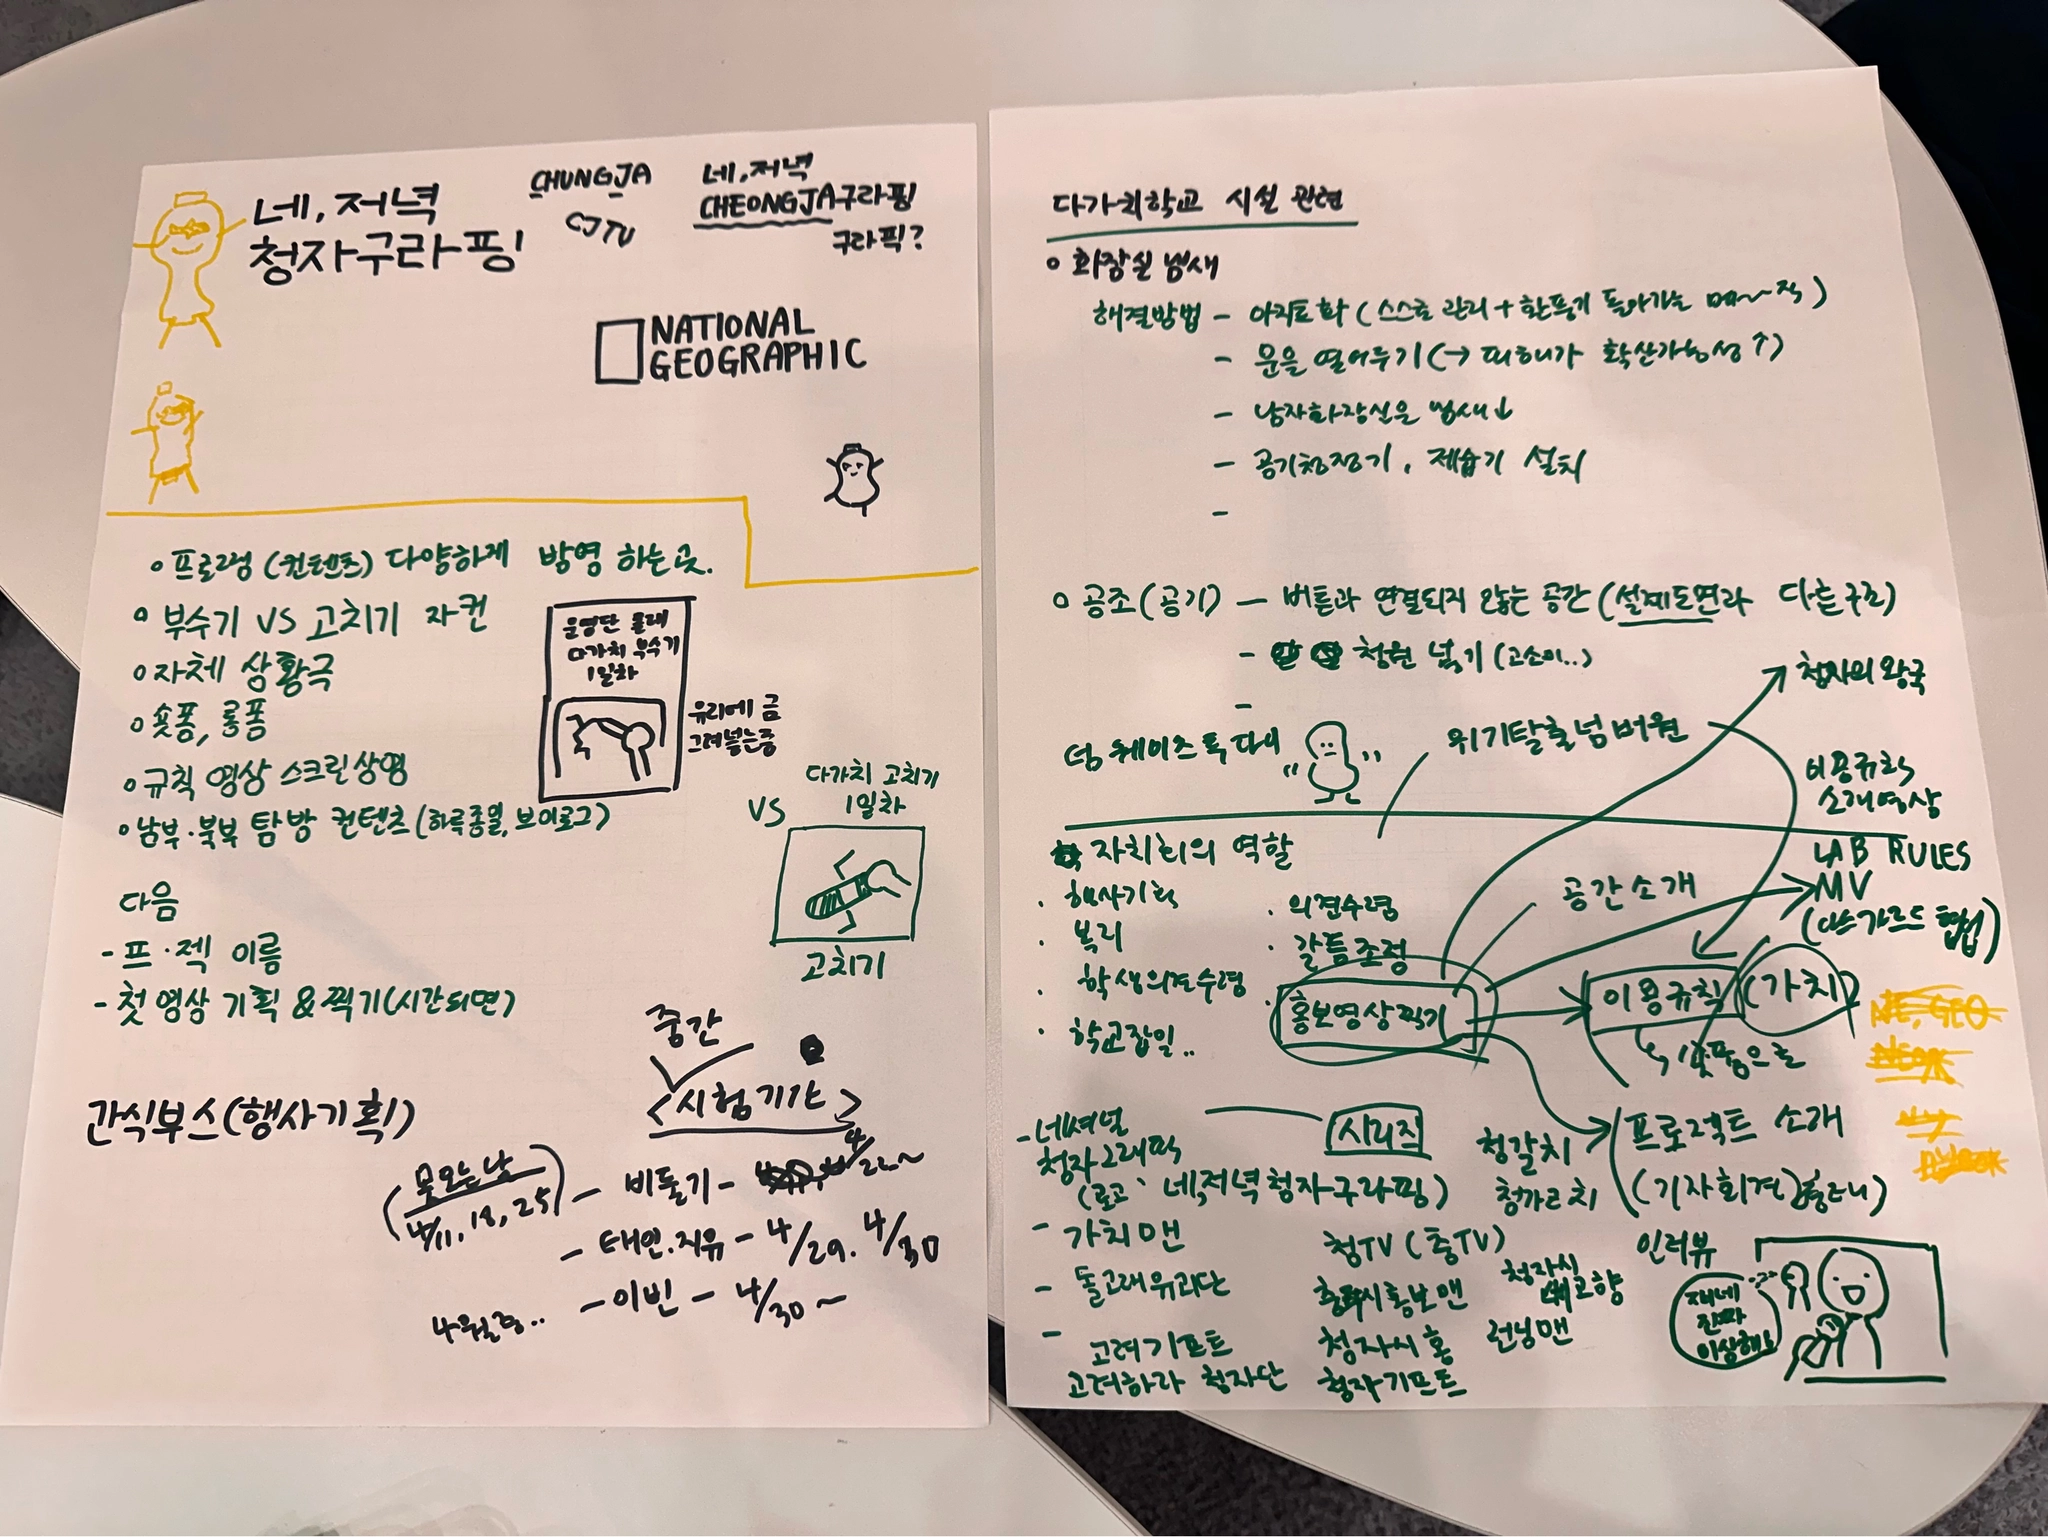 네, 저녁
청자구라핑
CHUNGJA
CJTV
네, 저녁
CHEONGJA구라핑
구라픽?
NATIONAL
GEOGRAPHIC
프로그램 (컨텐츠) 다양하게 방영 하는 곳.
부수기 VS 고치기 자컨
자체 상황극
숏폼, 롱폼
규칙 영상 스크린상영
남부·북부 탐방 컨텐츠 (하루종일, 브이로그)
운영단 몰래
다가치 부수기
1일차
유리에 금
그려넣는중
VS
다가치 고치기
1일차
고치기
다음
- 프·젝 이름
- 첫 영상 기획 & 찍기 (시간되면)
중간
<시험기간>
간식부스(행사기획)
(못오는날
4/11, 18, 25)
- 비둘기 - 4/22~
- 태인·지유 - 4/29. 4/30
- 이빈 - 4/30 ~
4월중..
다가치학교 시설 관련
화장실 냄새
해결방법 - 아지트화 (스스로 관리 + 환풍기 돌아가는
- 문을 열어두기 (→ 피해가 확산가능성↑)
- 남자화장실은 냄새↓
- 공기청정기, 제습기 설치
-
공조 (공기) - 버튼과 연결되지 않는 공간 (설계도면과 다른구조)
- 청원 넣기 (고소미..)
-
덤 웨이츠 톡 다이
위기탈출넘버원
청자의 왕국
이용규칙
소개영상
LAB RULES
MV
(아스가르드 협업)
자치회의 역할
· 행사기획
· 복리
· 학생의견수렴
· 학교잡일..
· 의견수렴
· 갈등조정
· 홍보영상찍기
공간소개
이용규칙 (가치)
↳ 숏폼으로
프로젝트 소개
(기자회견)
시리즈
- 네셔널
청자그래픽
(로고 네,저녁청자구라핑)
- 가치맨
- 돌고래유괴단
- 고려기프트
고려하라 청자단
청갈치
청가르치
청TV (충TV)
충주시홍보맨
청자시
고향
청자시 홍
런닝맨
청자기프트
인터뷰
쟤네
진짜
이상해요